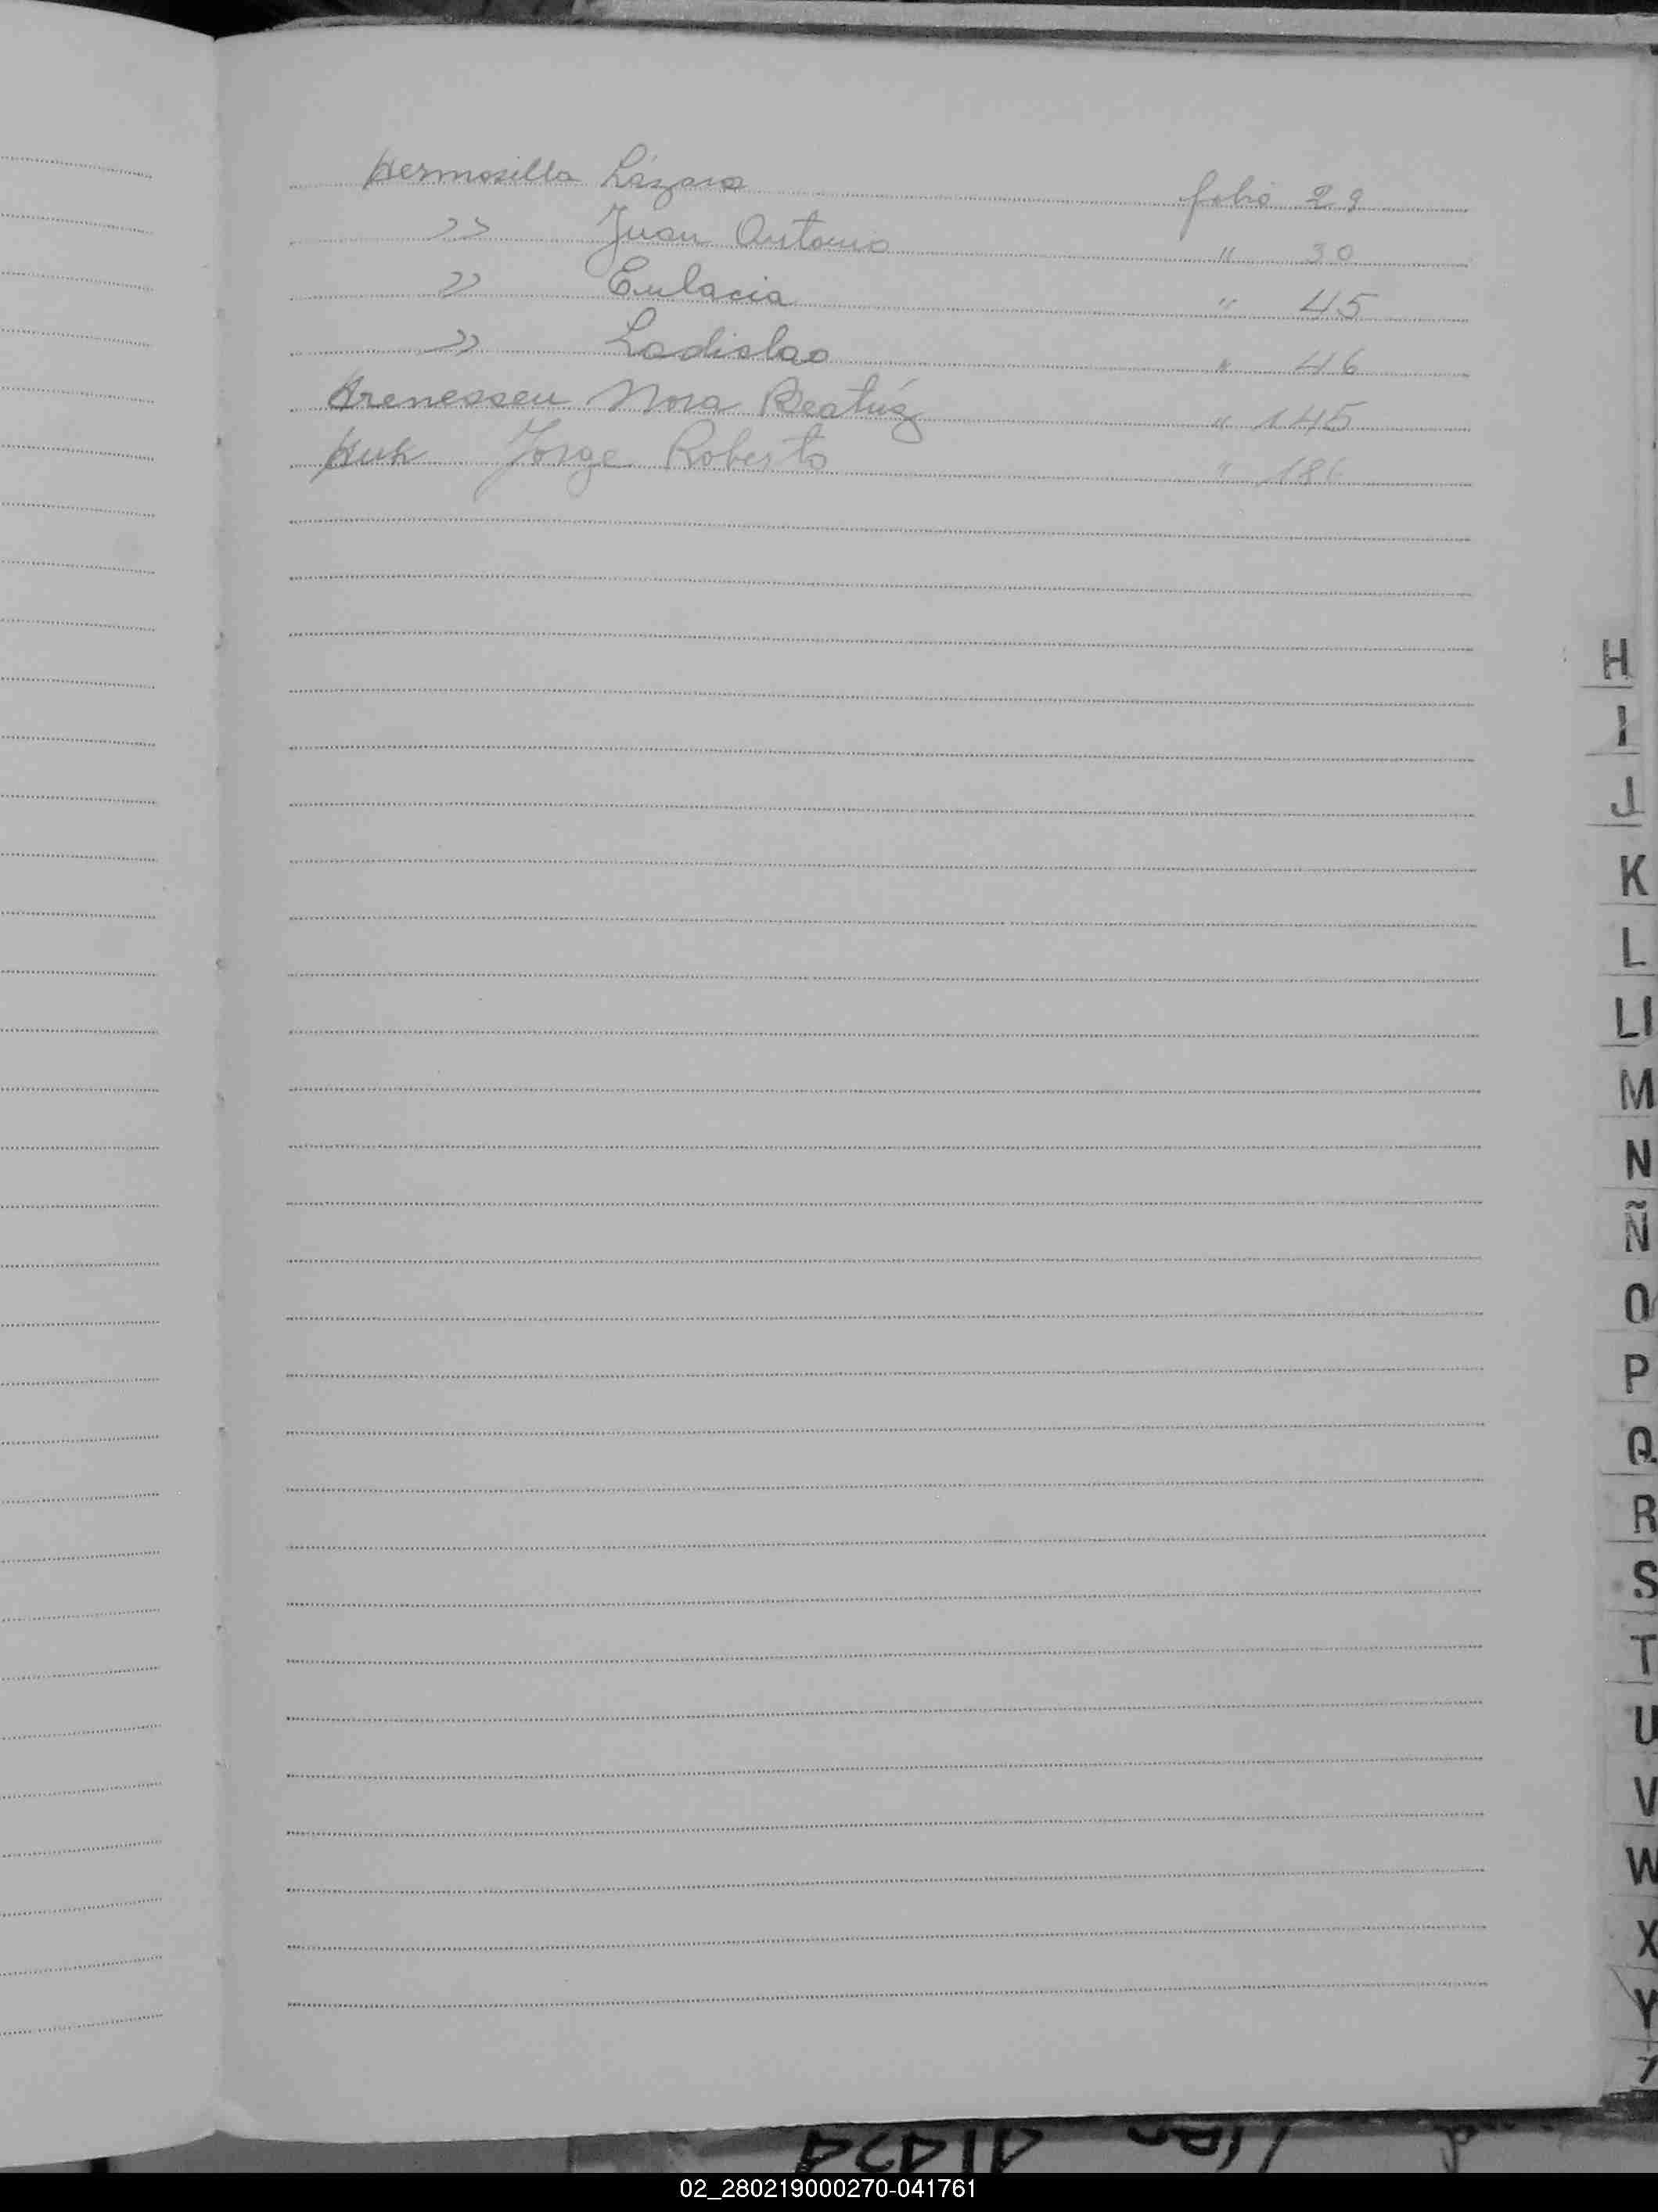 Hermosilla Lázaro folio 29
" Juan Antonio " 30
" Eulacia " 45
" Ladislao " 46
Hrenesseu Nora Beatríz " 145
Huk Jorge Roberto "
H
I
J
K
L
Ll
M
N
Ñ
O
P
Q
R
S
T
U
V
W
X
Y
02_280219000270-041761